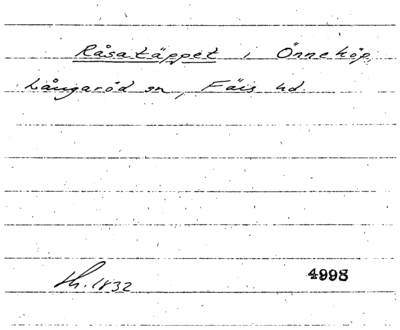 Råsatäppet i Önneköp,
Långaröd sn, Färs hd.
Lh. 1832
4998